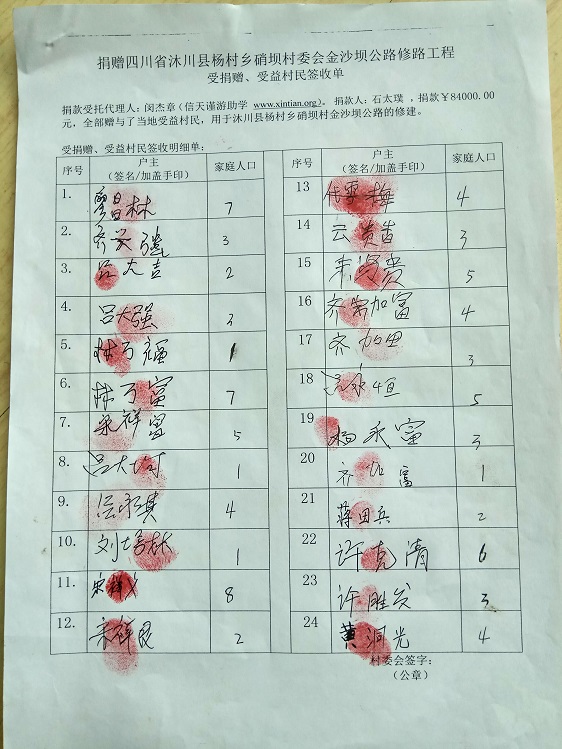 捐赠四川省沐川县杨村乡硝坝村委会金沙坝公路修路工程
受捐赠、受益村民签收单
捐款受托代理人：闵杰章（信天谨游助学 www.xintian.org）。捐款人：石太璞，捐款￥84000.00
元，全部赠与了当地受益村民，用于沐川县杨村乡硝坝村金沙坝公路的修建。
受捐赠、受益村民签收明细单：
序号 户主（签名/加盖手印） 家庭人口
1. 昌林 7
2. 齐兴强 3
3. 吕大吉 2
4. 吕大强 3
5. 林万福 1
6. 林万富 7
7. 宋祥富 5
8. 吕大 1
9. 4
10. 刘培林 1
11. 宋祥 8
12. 宋祥民 2
序号 户主（签名/加盖手印） 家庭人口
13 代雪梅 4
14 云贵 3
15 贵 5
16 齐加富 4
17 齐加 3
18 永恒 5
19 杨永富 3
20 齐加富 1
21 蒋田兵 2
22 许克清 6
23 许胜 3
24 黄洞光 4
村委会签字：
（公章）